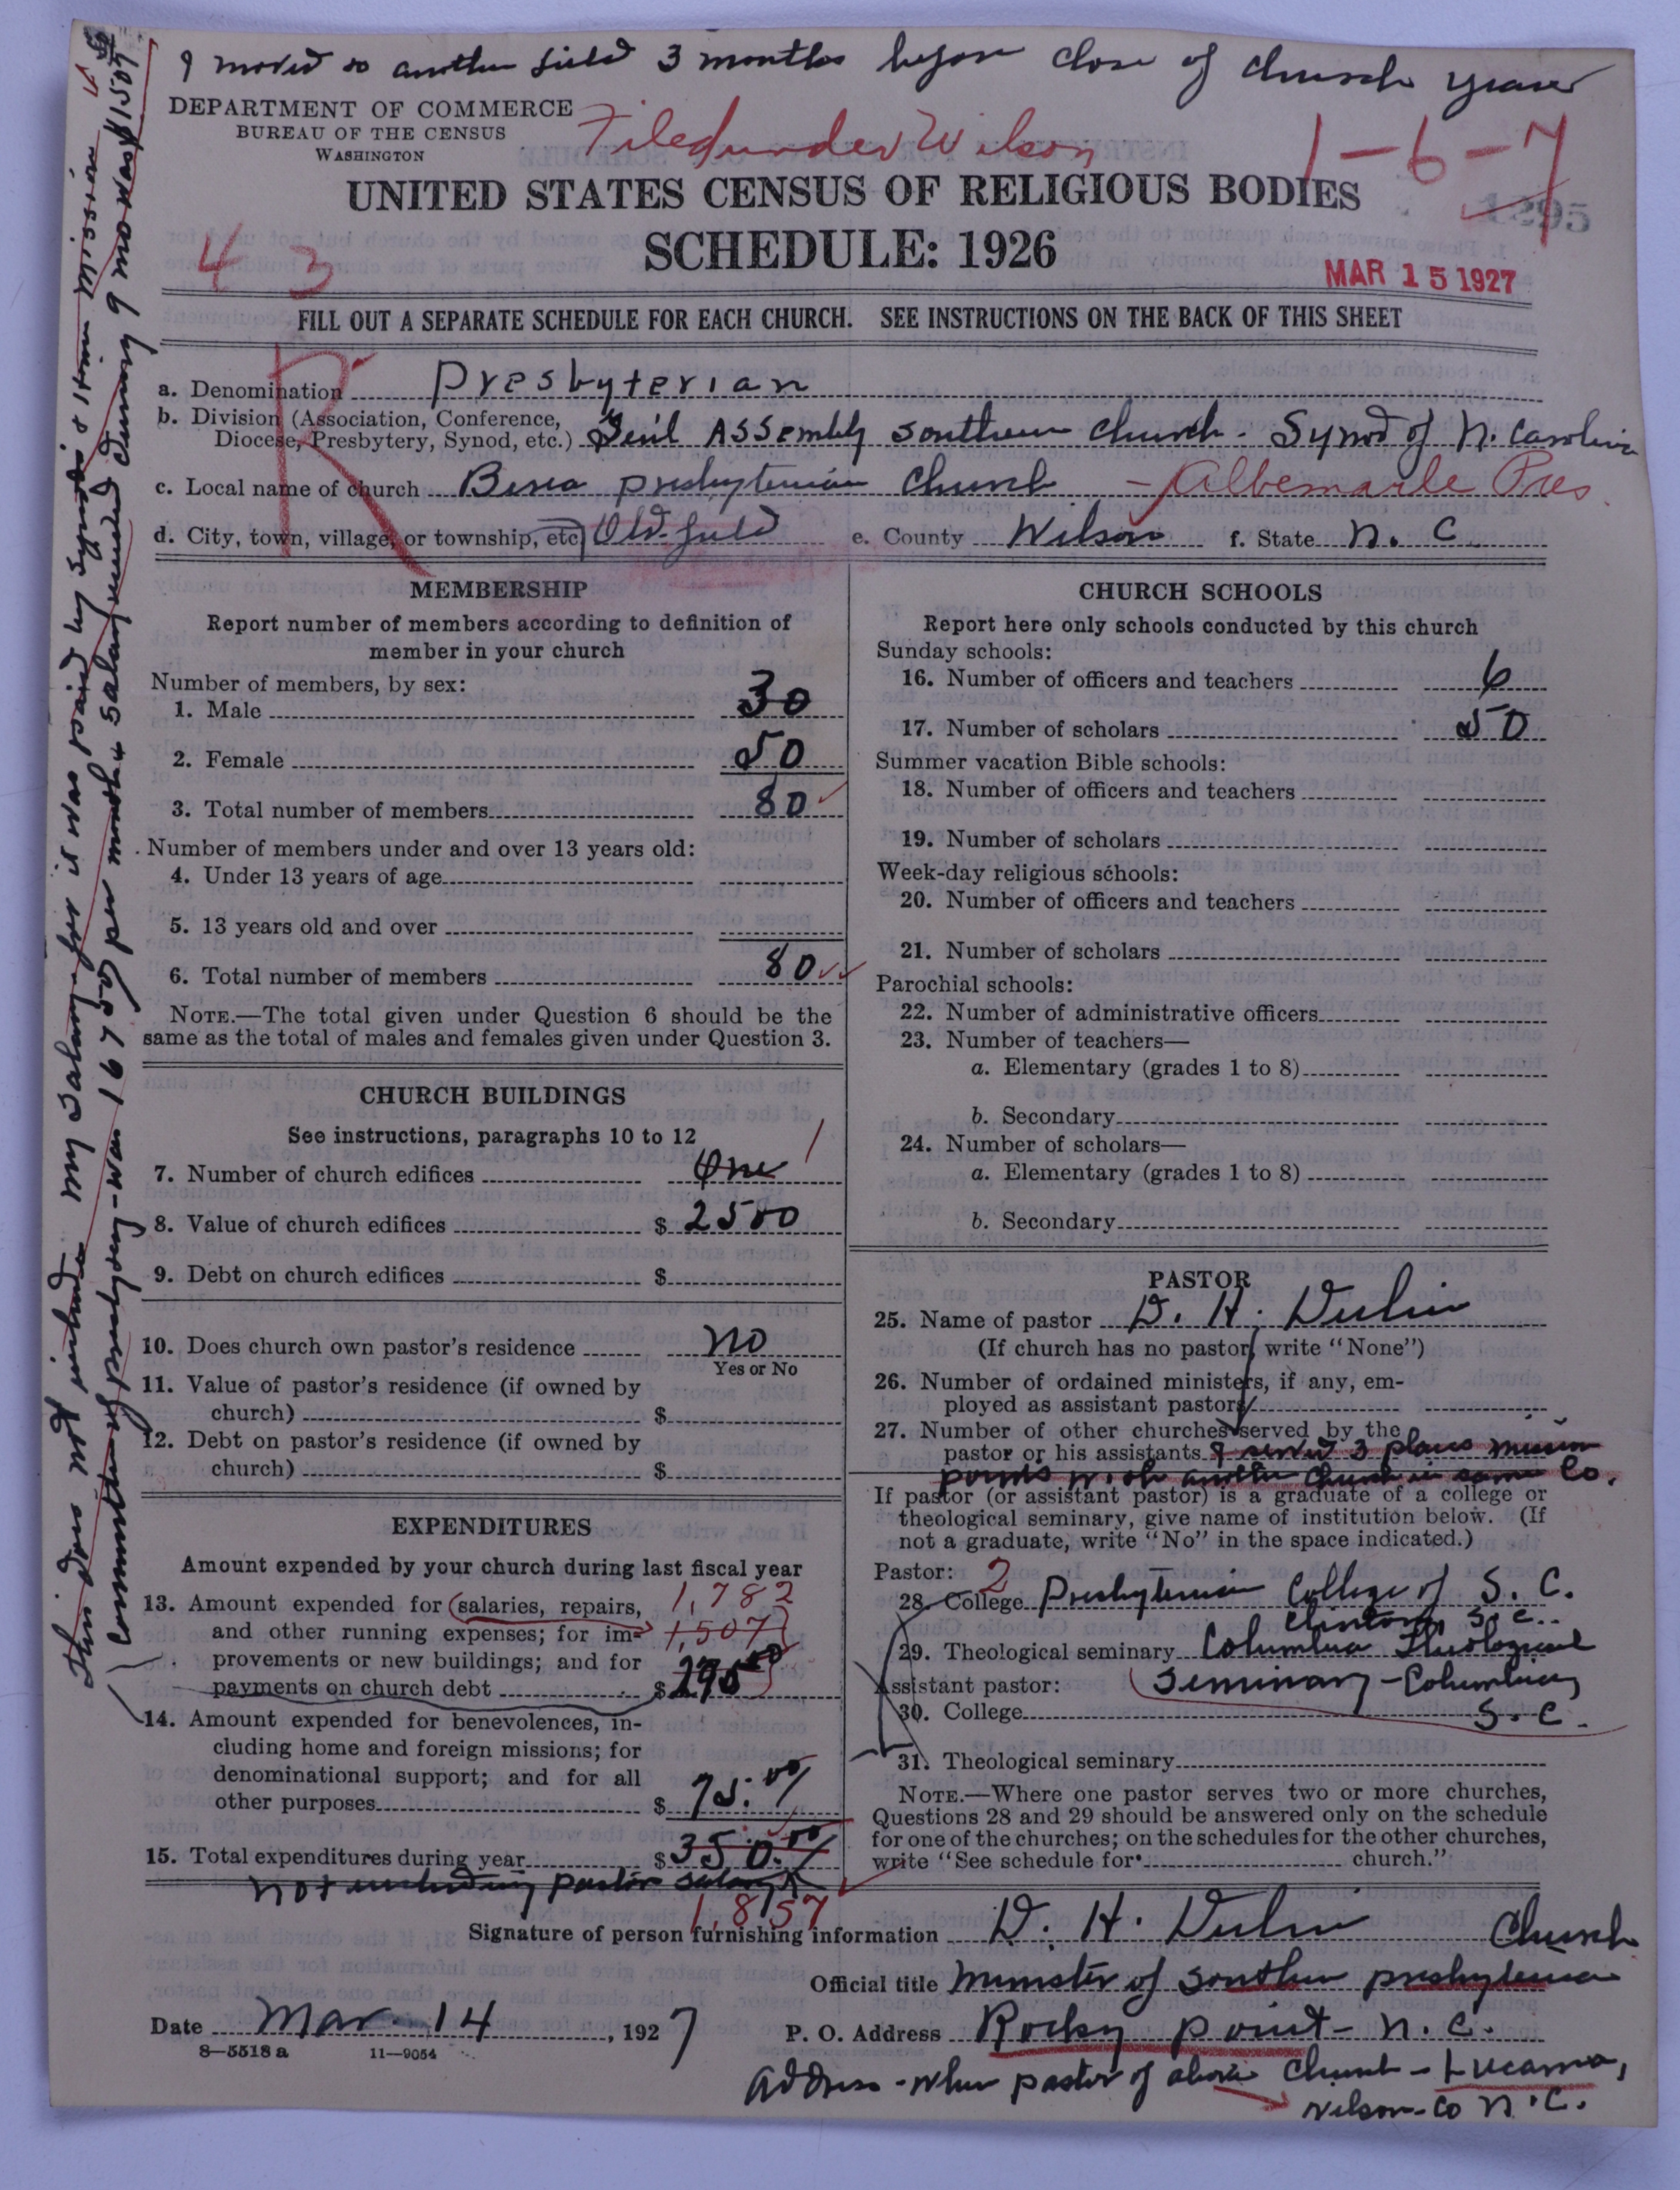 I moved to another field 3 months before close of church year
DEPARTMENT OF COMMERCE
BUREAU OF THE CENSUS
WASHINGTON
Filed under Wilson
1-6-7
1295
UNITED STATES CENSUS OF RELIGIOUS BODIES
SCHEDULE: 1926
43
MAR 15 1927
FILL OUT A SEPARATE SCHEDULE FOR EACH CHURCH. SEE INSTRUCTIONS ON THE BACK OF THIS SHEET
R
a. Denomination Presbyterian
b. Division (Association, Conference,
Diocese, Presbytery, Synod, etc.) Gen'l Assembly Southern Church - Synod of N. Carolina
c. Local name of church Berea Presbyterian Church - Albemarle Pres
d. City, town, village, or township, etc. Old-field e. County Wilson f. State N. C.
MEMBERSHIP
Report number of members according to definition of
member in your church
Number of members, by sex:
1. Male 30
2. Female 50
3. Total number of members 80
Number of members under and over 13 years old:
4. Under 13 years of age
5. 13 years old and over
6. Total number of members 80
NOTE.—The total given under Question 6 should be the
same as the total of males and females given under Question 3.
CHURCH BUILDINGS
See instructions, paragraphs 10 to 12
7. Number of church edifices One 1
8. Value of church edifices $ 2500
9. Debt on church edifices $
10. Does church own pastor's residence no
Yes or No
11. Value of pastor's residence (if owned by
church) $
12. Debt on pastor's residence (if owned by
church) $
EXPENDITURES
Amount expended by your church during last fiscal year
13. Amount expended for salaries, repairs, 1,782
and other running expenses; for im- 1,507
provements or new buildings; and for
payments on church debt $ 275.00
14. Amount expended for benevolences, in-
cluding home and foreign missions; for
denominational support; and for all
other purposes $ 75.00
15. Total expenditures during year $ 350.00
not including pastors salary
1,857
CHURCH SCHOOLS
Report here only schools conducted by this church
Sunday schools:
16. Number of officers and teachers 6
17. Number of scholars 50
Summer vacation Bible schools:
18. Number of officers and teachers
19. Number of scholars
Week-day religious schools:
20. Number of officers and teachers
21. Number of scholars
Parochial schools:
22. Number of administrative officers
23. Number of teachers—
a. Elementary (grades 1 to 8)
b. Secondary
24. Number of scholars—
a. Elementary (grades 1 to 8)
b. Secondary
PASTOR
25. Name of pastor D. H. Dulin
(If church has no pastor, write "None")
26. Number of ordained ministers, if any, em-
ployed as assistant pastors
27. Number of other churches served by the
pastor or his assistants I served 3 places mission
points with another church in same Co.
If pastor (or assistant pastor) is a graduate of a college or
theological seminary, give name of institution below. (If
not a graduate, write "No" in the space indicated.)
Pastor: 2
28. College Presbyterian College of S. C.
Clinton, S. C.
29. Theological seminary Columbia Theological
Assistant pastor: Seminary - Columbia,
30. College S. C.
31. Theological seminary
NOTE.—Where one pastor serves two or more churches,
Questions 28 and 29 should be answered only on the schedule
for one of the churches; on the schedules for the other churches,
write "See schedule for church."
Signature of person furnishing information D. H. Dulin
Official title Minister of Southern Presbyterian Church
Date Mar. 14, 1927 P. O. Address Rocky Point - N. C.
8—5518 a 11—9054
Address - when pastor of above Church - Lucama,
Wilson - Co N. C.
This does not include my salary for it was paid by Synod's Home Mission
Committee & Presbytery - was 167.50 per month & salary received during 9 mo was $1507